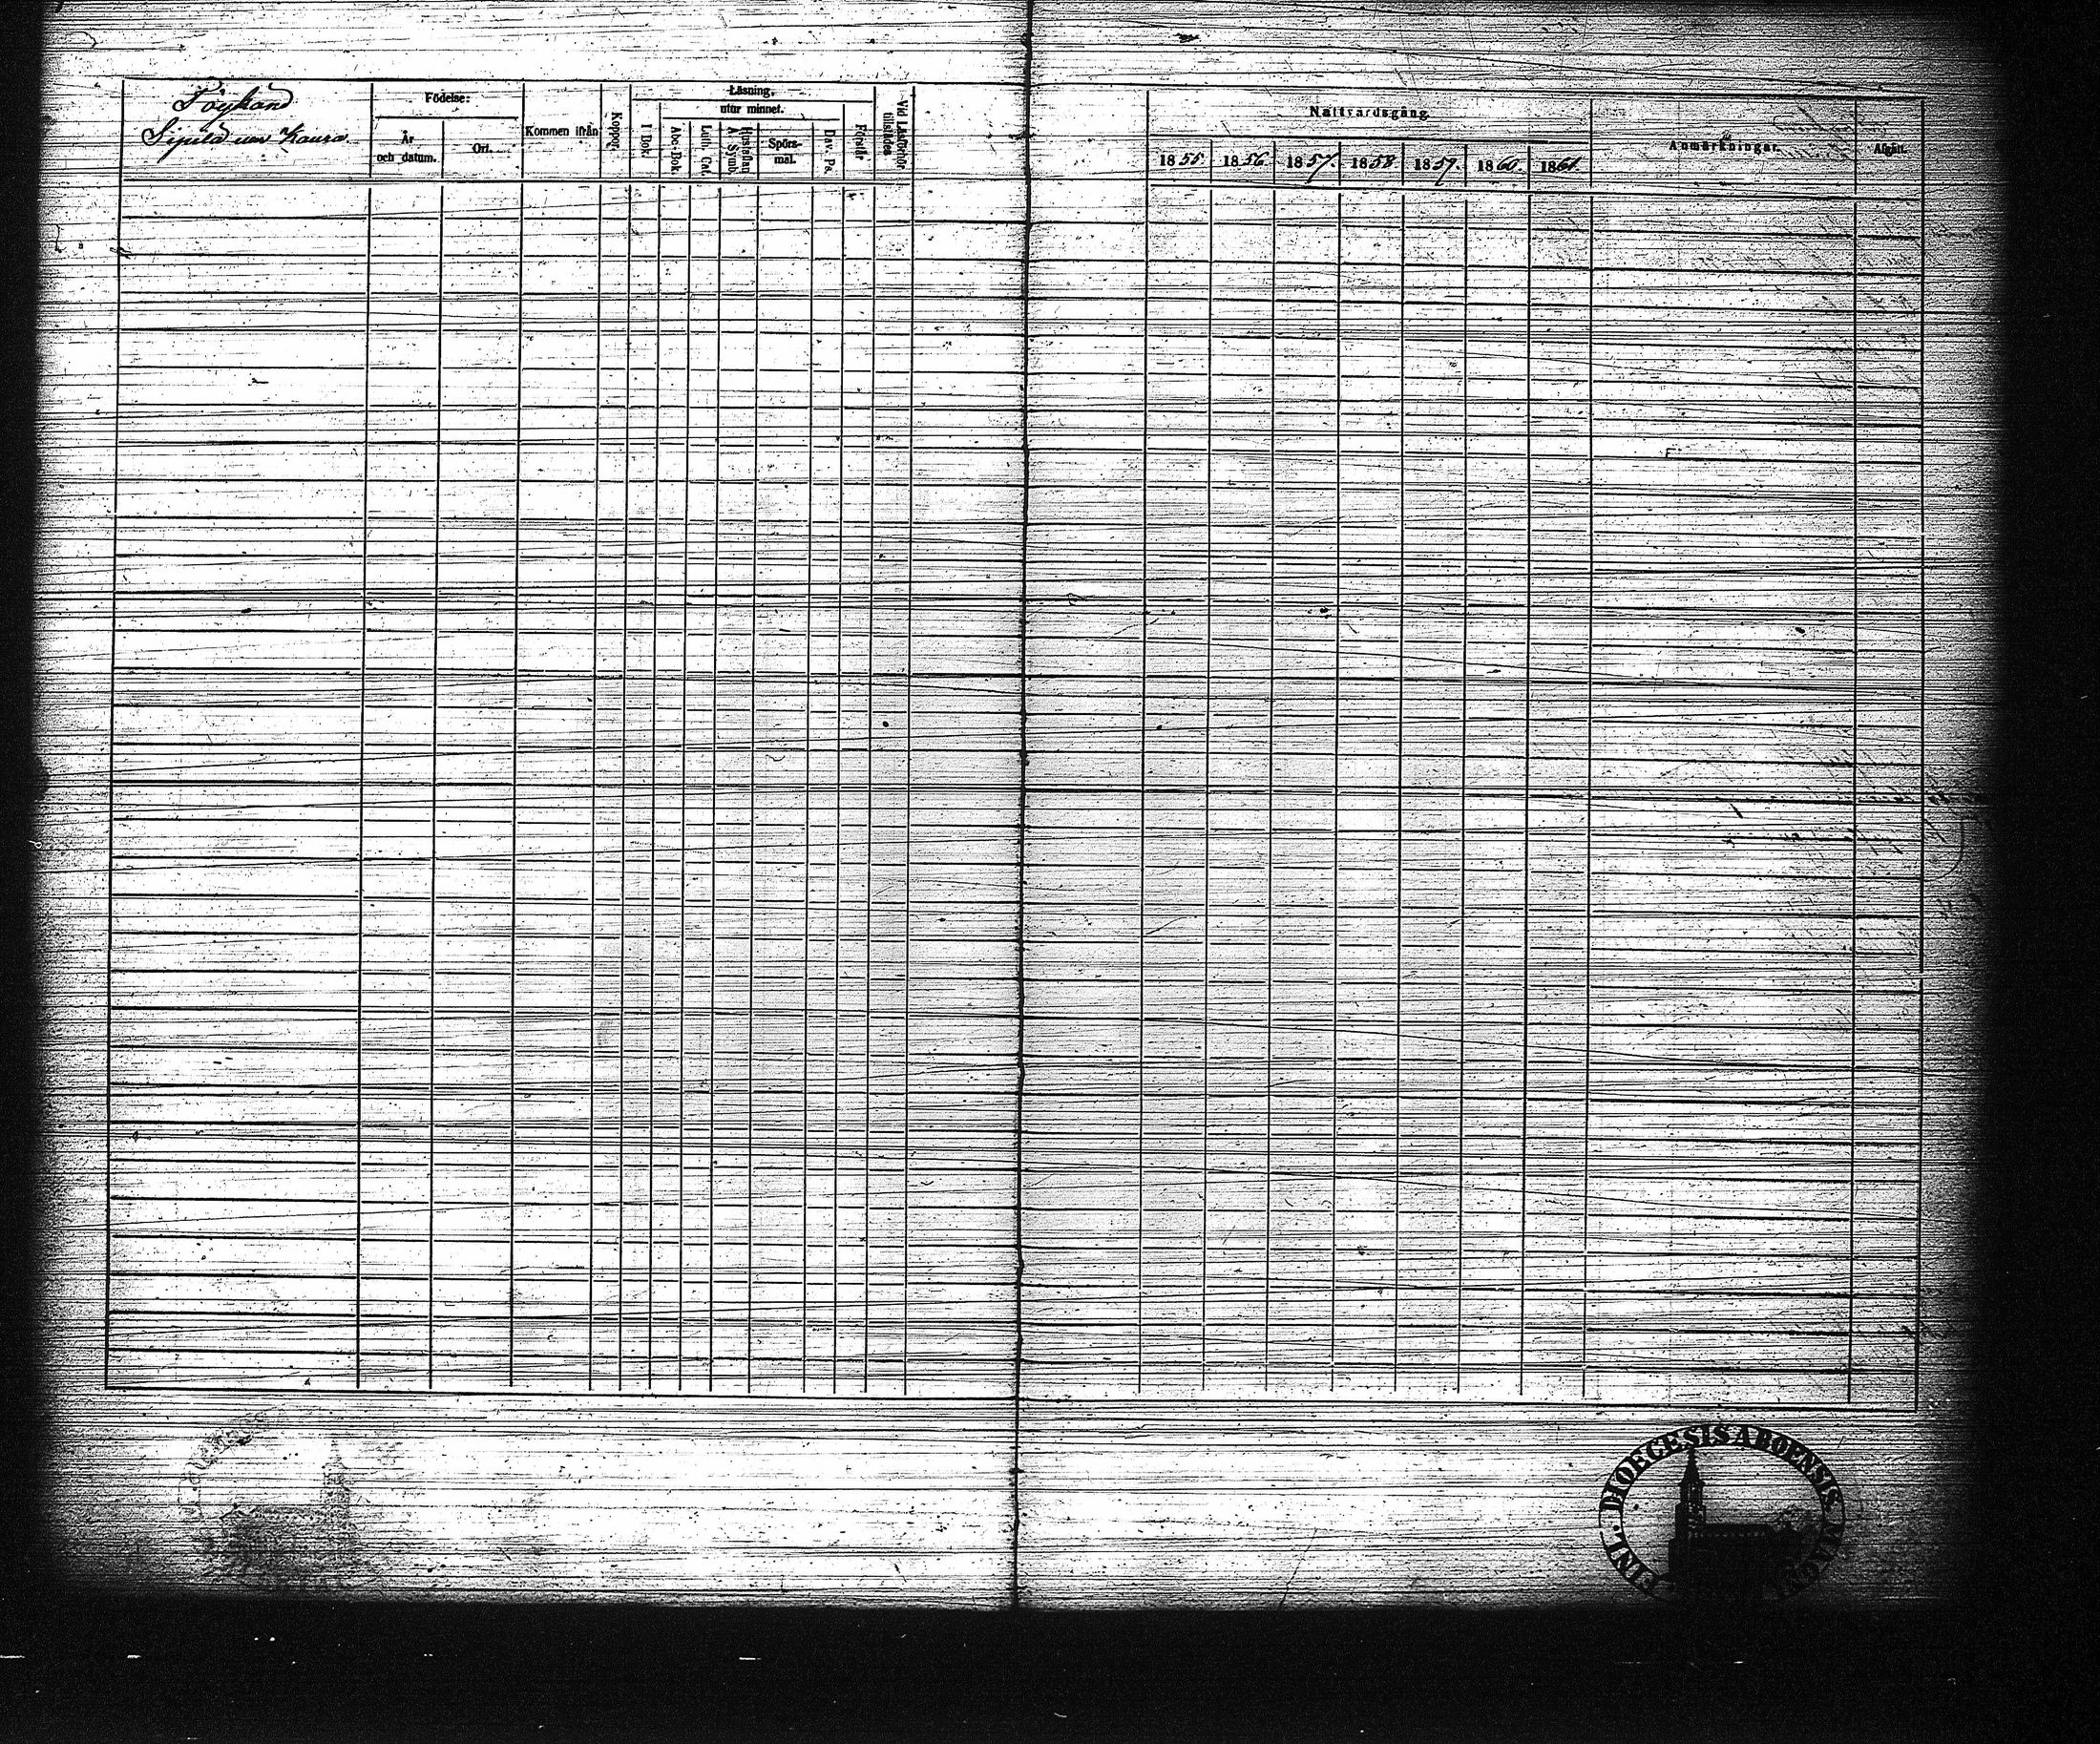 Töykänä
Sipilä
Födelse:
År och datum.
Ort.
Kommen ifrån
Koppor.
Läsning,
utur minnet.
I Bok.
Abc-Bok.
Luth. Cat.
Hustaflan A. Symb.
Spörs-mål.
Dav. Ps.
Förstår
Vid Läsförhör tillstädes
Nattvardsgång.
1855.
1856.
1857.
1858
1859.
1860.
1861.
Anmärkningar.
Afgått.
FINL. DIOECESIS ABOENSIS MAGNI